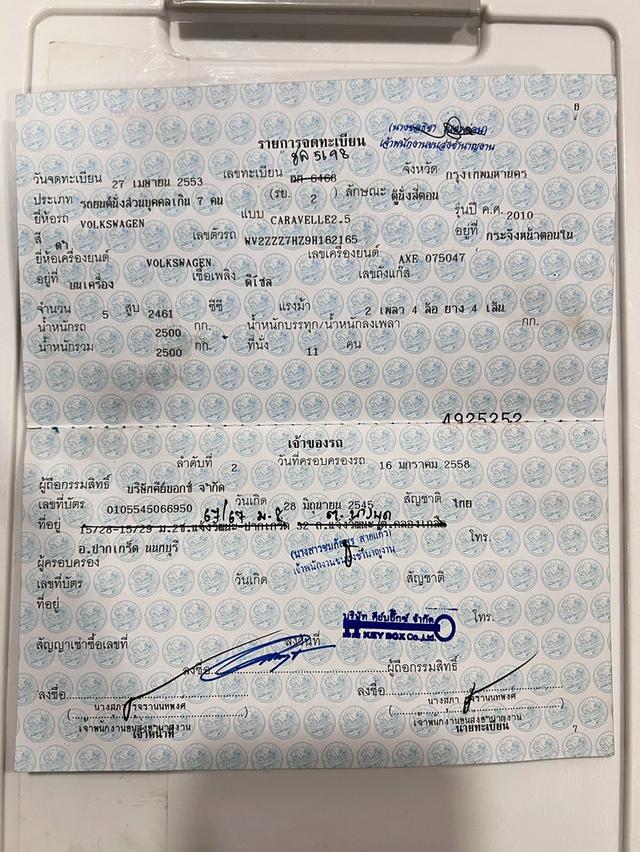 8
(นางชลธิชา
เจ้าพนักงานขนส่งชำนาญงาน
รายการจดทะเบียน
5198
วันจดทะเบียน 27 เมษายน 2553 เลขทะเบียน 6468 จังหวัด กรุงเทพมหานคร
ประเภท รถยนต์นั่งส่วนบุคคลเกิน 7 คน (รย. 2) ลักษณะ ตู้นั่งสี่ตอน
ยี่ห้อรถ VOLKSWAGEN แบบ CARAVELLE2.5 รุ่นปี ค.ศ. 2010
สี ดำ เลขตัวรถ WV2ZZZ7HZ9H162165 อยู่ที่ กระจังหน้าตอนใน
ยี่ห้อเครื่องยนต์ VOLKSWAGEN เลขเครื่องยนต์ AXE 075047
อยู่ที่ บนเครื่อง เชื้อเพลิง ดีเซล เลขถังแก๊ส
จำนวน 5 สูบ 2461 ซีซี แรงม้า 2 เพลา 4 ล้อ ยาง 4 เส้น
น้ำหนักรถ 2500 กก. น้ำหนักบรรทุก/น้ำหนักลงเพลา กก.
น้ำหนักรวม 2500 กก. ที่นั่ง 11 คน
4925352
เจ้าของรถ
ลำดับที่ 2 วันที่ครอบครองรถ 16 มกราคม 2558
ผู้ถือกรรมสิทธิ์ บริษัทคีย์บอกซ์ จำกัด
เลขที่บัตร 0105545066950 วันเกิด 28 มิถุนายน 2545 สัญชาติ ไทย
67/67 ม.8
ที่อยู่ 15/28-15/29 ม.2ซ.แจ้งวัฒนะ-ปากเกร็ด 32 ถ.แจ้งวัฒนะ ต.คลองเกลือ
อ.ปากเกร็ด นนทบุรี โทร.
สายแก้ว)
เจ้าพนักงานขนส่งชำนาญงาน
ผู้ครอบครอง
เลขที่บัตร วันเกิด สัญชาติ
ที่อยู่ โทร.
บริษัท คีย์บ๊อกซ์ จำกัด
KEY BOX Co.,Ltd.
สัญญาเช่าซื้อเลขที่ ลงวันที่
ลงชื่อ ผู้ถือกรรมสิทธิ์
ลงชื่อ ลงชื่อ
เจ้าพนักงานขนส่งชำนาญงาน เจ้าพนักงานขนส่งชำนาญงาน
เจ้าหน้าที่ นายทะเบียน
7